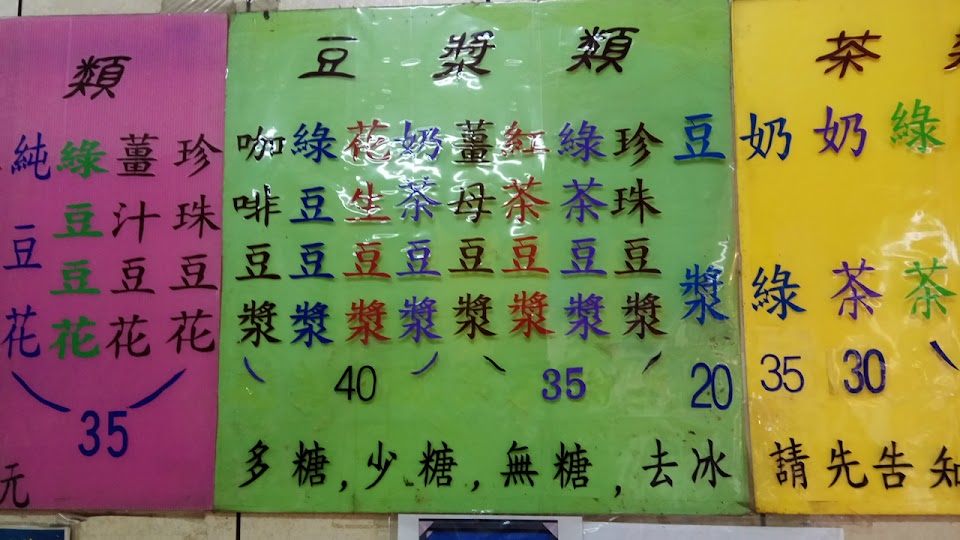 類
珍珠豆花
薑汁豆花
綠豆豆花
純豆花
35
元
豆漿類
豆漿
20
珍珠豆漿
綠茶豆漿
紅茶豆漿
薑母豆漿
35
奶茶豆漿
花生豆漿
綠豆豆漿
咖啡豆漿
40
多糖,少糖,無糖,去冰
茶
綠茶
奶茶
30
奶綠
35
請先告知